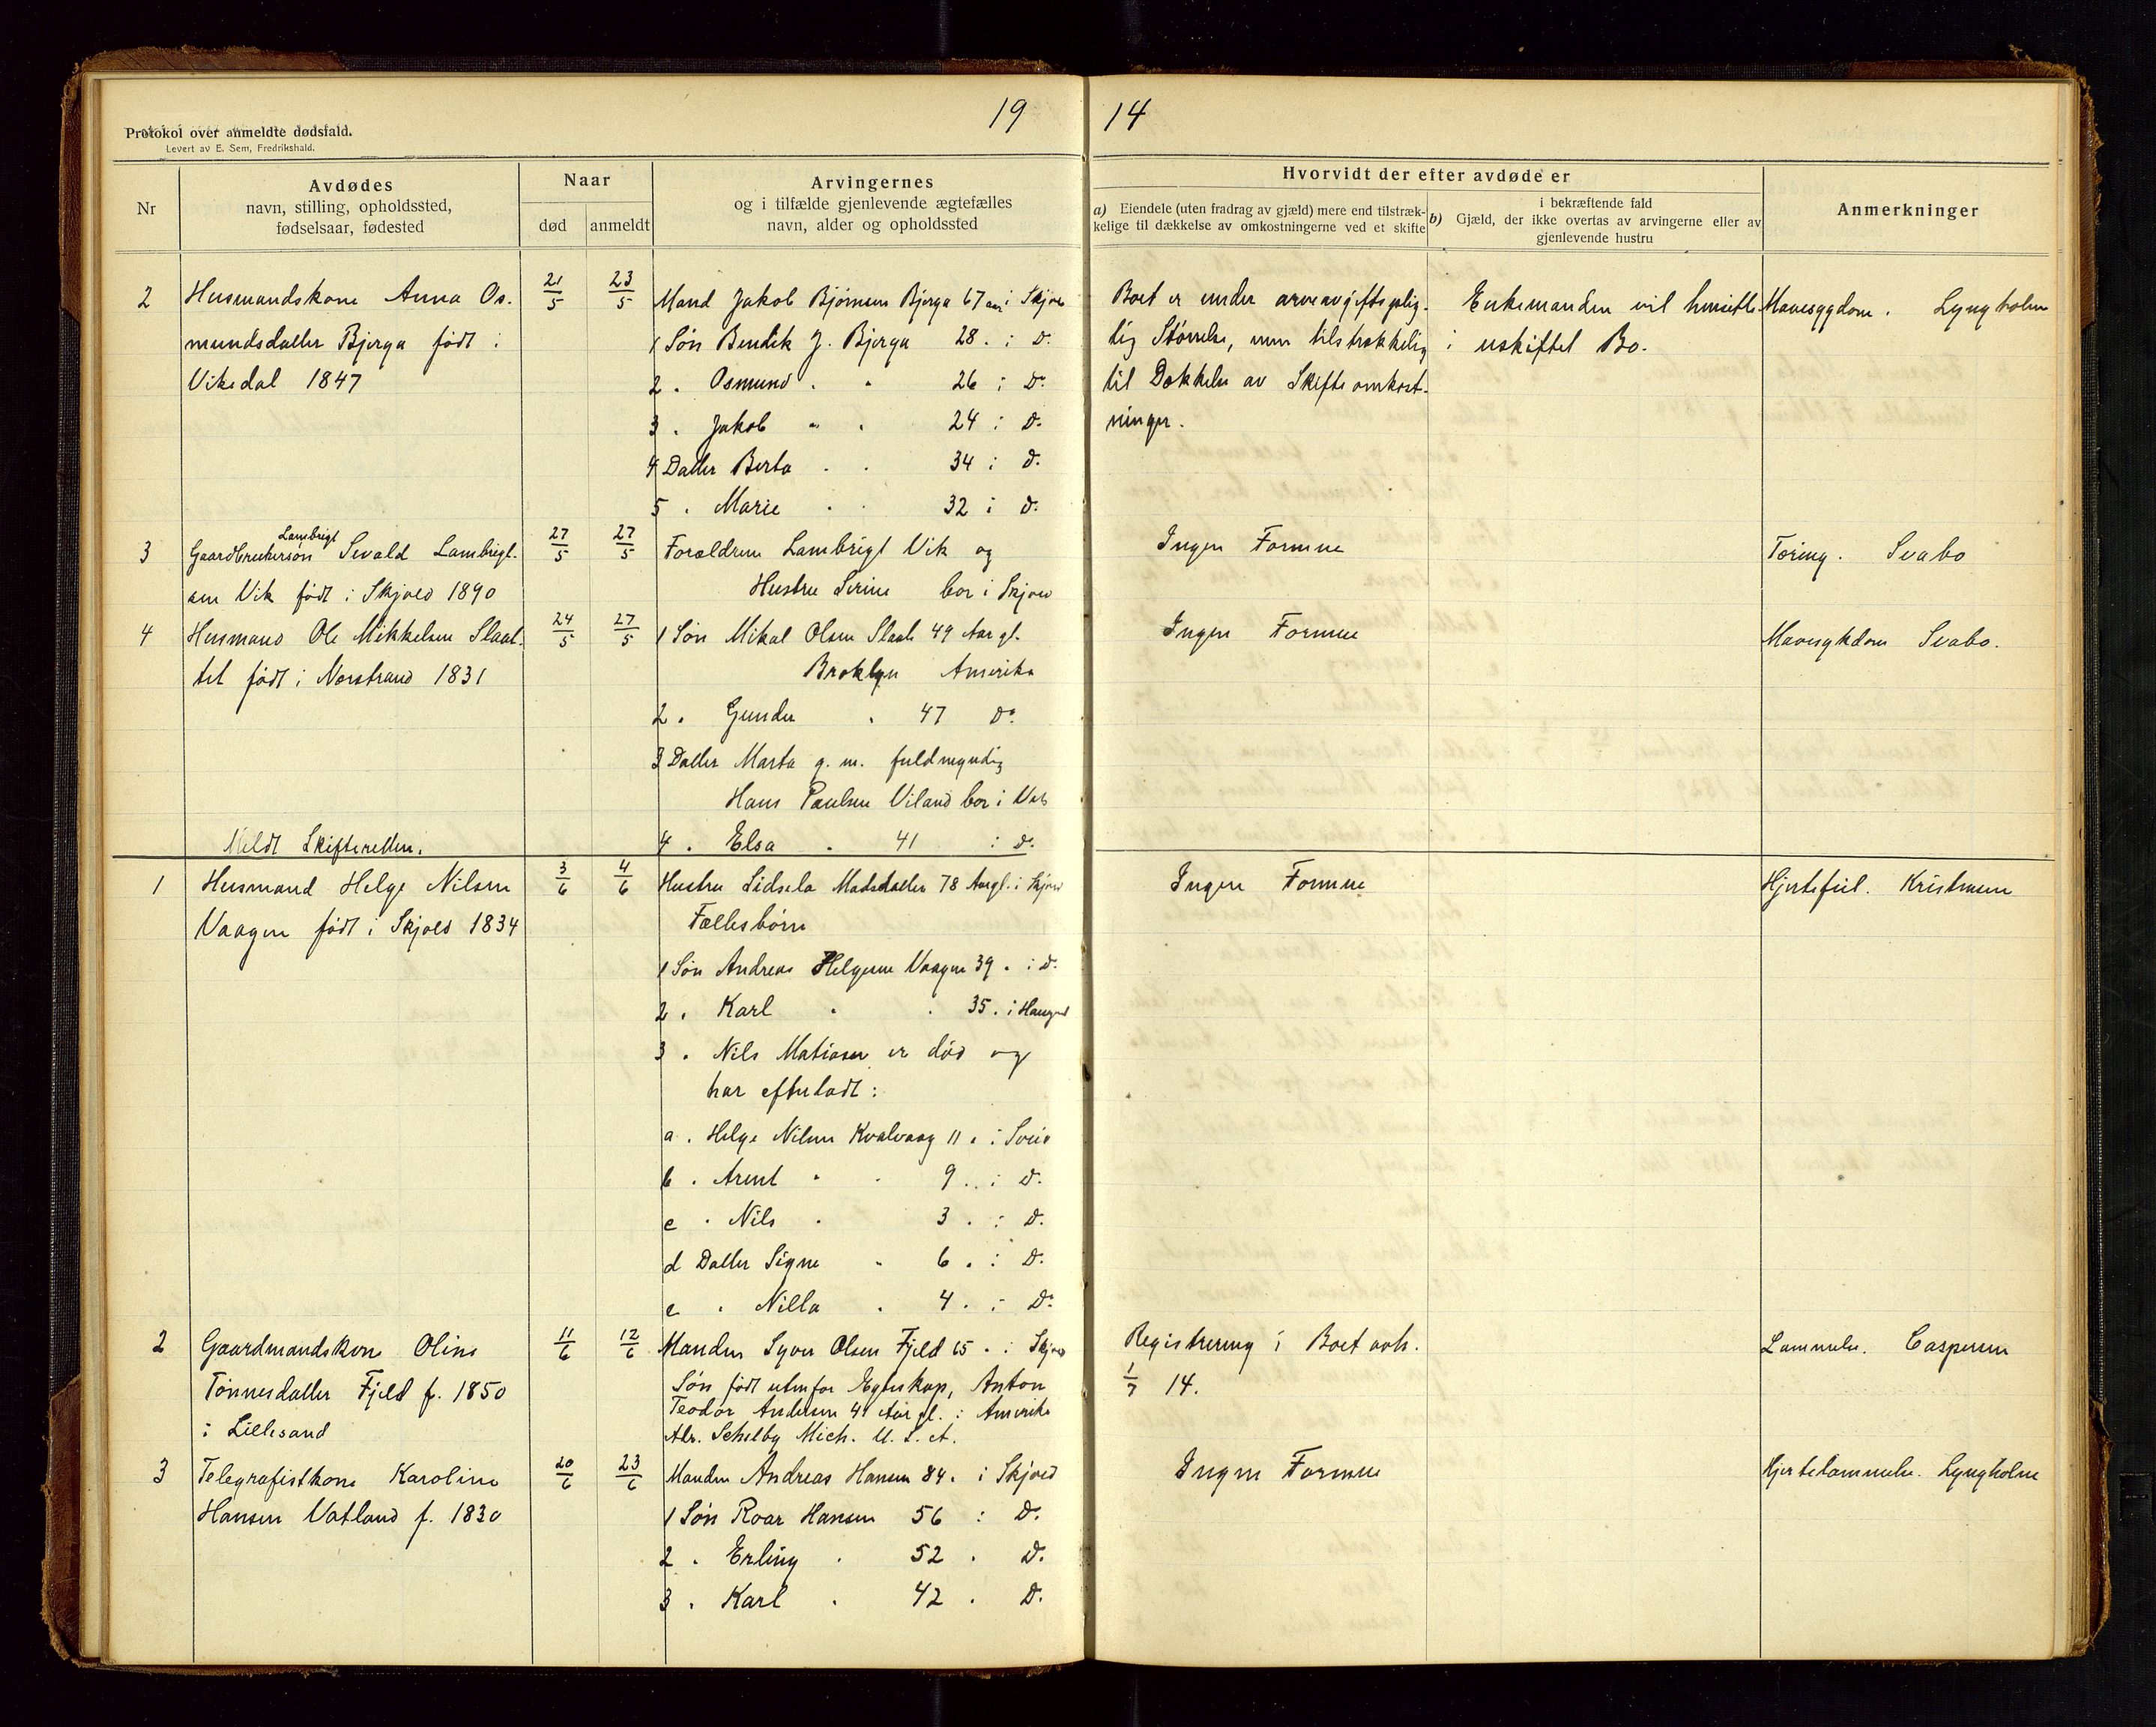 19 14
Protokol over anmeldte dødsfald.
Levert av E. Sem, Fredrikshald.
Nr
Avdødes
navn, stilling, opholdssted,
fødselsaar, fødested
Naar
død
anmeldt
Arvingernes
og i tilfælde gjenlevende ægtefælles
navn, alder og opholdssted
Hvorvidt der efter avdøde er
a) Eiendele (uten fradrag av gjæld) mere end tilstræk-
kelige til dækkelse av omkostningerne ved et skifte
i bekræftende fald
b) Gjæld, der ikke overtas av arvingerne eller av
gjenlevende hustru
Anmerkninger
2 Husmandskone Anna Os-
mundsdatter Bjerga født i
Vikedal 1847
21/5 23/5
Mand Jakob Bjørnsen Bjerga 67 aar i Skjold
1 Søn Bendik J. Bjerga 28 . i Do
2 . Osmund . " 26 i Do
3 . Jakob " . 24 i Do
4 Datter Berta . . 34 i Do
5 . Marie . . 32 i Do
Boet er under arveavgiftsplig-
tig Størrelse, men tilstrækkelig
til Dækkelse av Skifteomkost-
ninger.
Enkemanden vil hensitte
i uskiftet Bo.
Mavesygdom. Lyngholm
3 Gaardbrukersøn Lambrigt Sevald Lambrigt-
sen Vik født i Skjold 1890
27/5 27/5
Forældrene Lambrigt Vik og
Hustru Serine bor i Skjold
Ingen Formue
Tæring. Svabo
4 Husmand Ole Mikkelsen Slaat-
tet født i Nærstrand 1831
24/5 27/5
1 Søn Mikal Olsen Slaate 49 Aar gl.
Broklyn Amerika
2 . Gunder . 47 Do
3 Datter Marta g. m. fuldmyndig
Hans Paulsen Viland bor i Vats
4 . Elsa . 41 i Do
Ingen Formue
Mavesykdom Svabo.
Meldt Skifteretten.
1 Husmand Helge Nilsen
Vaagen født i Skjold 1834
3/6 4/6
Hustru Sidsela Madsdatter 78 Aargl. i Skjold
Fællesbørn
1 Søn Andreas Helgesen Vaagen 39 . i Do
2 . Karl . . 35 . i Haugesd
3 . Nils Matiasen er død og
har efterladt :
a . Helge Nilsen Kvalvaag 11 . i Sveio
b . Arent " . 9 . i Do
c . Nils . 3 . i Do
d Datter Signe " 6 . i Do
e . Nilla . 4 . i Do
Ingen Formue
Hjertefeil. Kristensen
2 Gaardmandskone Oline
Tønnesdatter Fjeld f. 1850
i Lillesand
11/6 12/6
Manden Syver Olsen Fjeld 65 . i Skjold
Søn født utenfor Egteskap, Anton
Teodor Andersen 41 Aar gl. i Amerika
Adr. Schelby Mich. U. S. A.
Registrering i Boet avh.
1/7 14.
Lammelse. Caspersen
3 Telegrafistkone Karoline
Hansen Vatland f. 1830
20/6 23/6
Manden Andreas Hansen 84 . i Skjold
1 Søn Roar Hansen 56 i Do
2 . Erling . 52 . Do
3 . Karl . 42 . Do
Ingen Formue
Hjertelammelse. Lyngholm